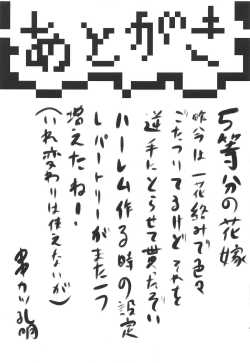 あとがき
5等分の花嫁
昨今は一花絡みで色々
ごたついてるけどそれを
逆手にとらせて貰ったぞい
ハーレム作る時の設定
レパートリーがまた一つ
増えたねー!
(いれ変わりは使えないが)
カツ孔明